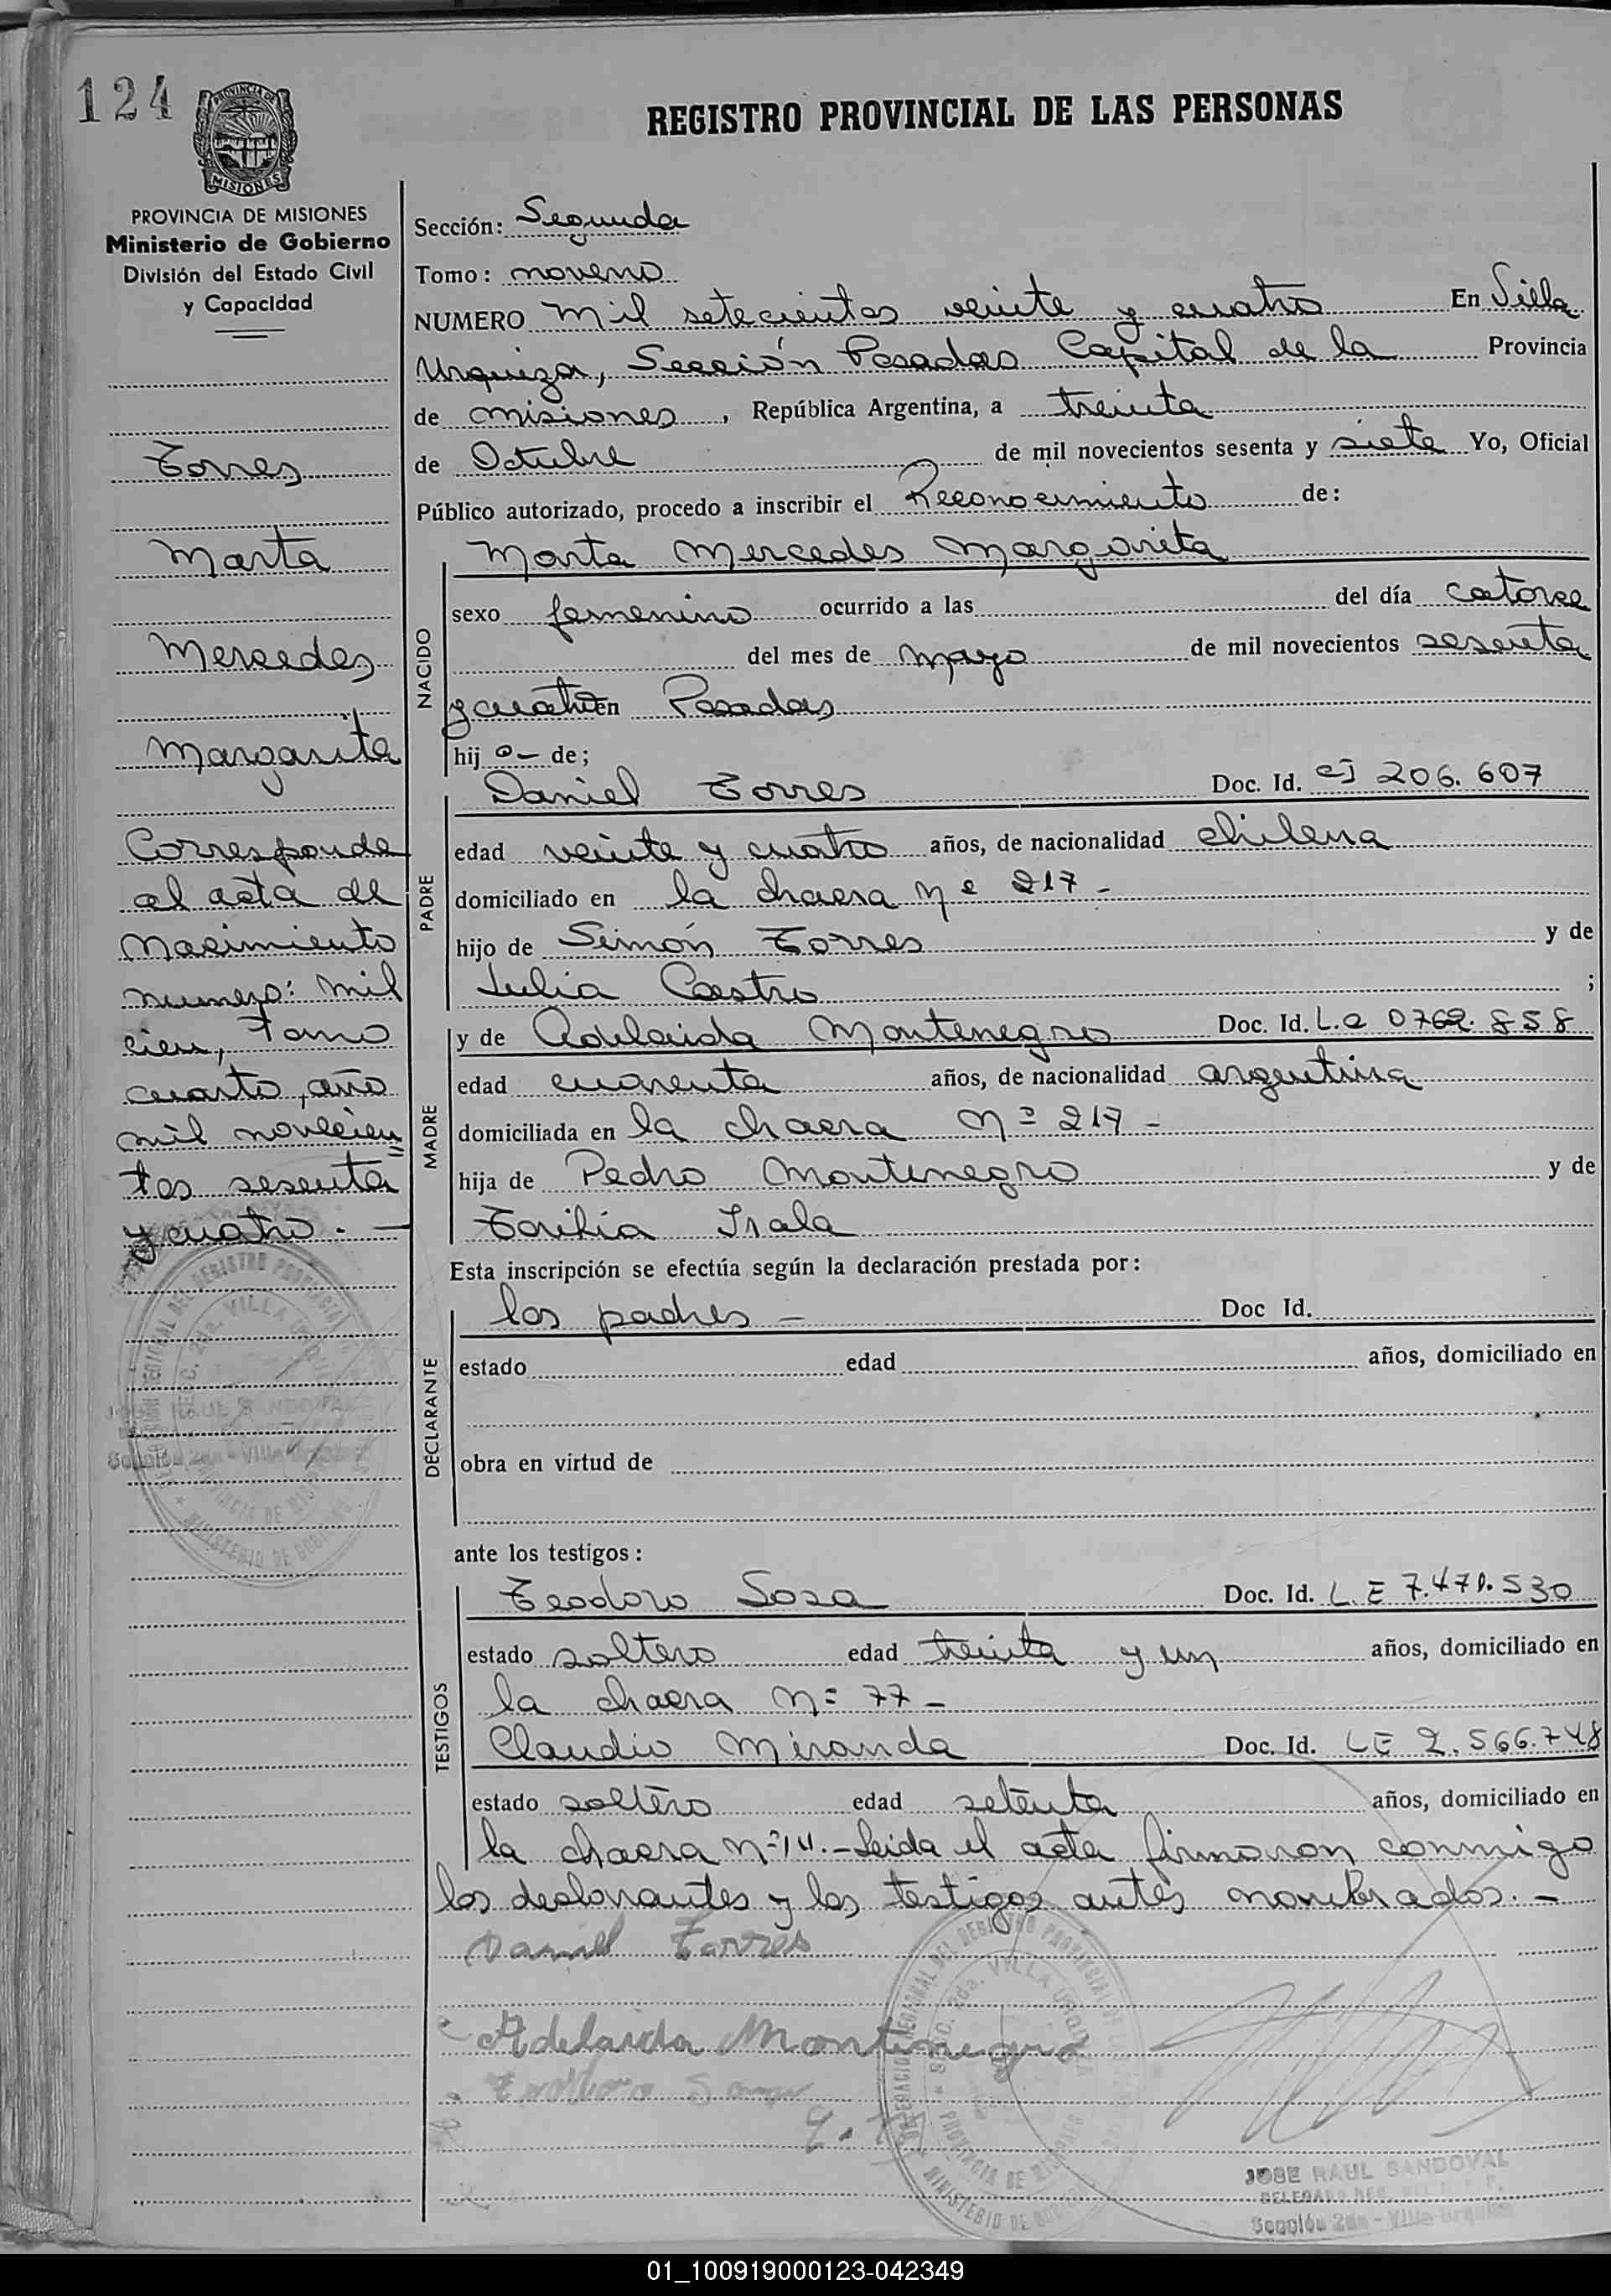 124
PROVINCIA DE MISIONES
REGISTRO PROVINCIAL DE LAS PERSONAS
PROVINCIA DE MISIONES
Ministerio de Gobierno
División del Estado Civil
y Capacidad
Torres
Marta
Mercedes
Margarita
Corresponde
al acta de
nacimiento
numero: mil
cien, Tomo
cuarto, año
mil novecien=
tos sesenta
y cuatro. -
Sección: Segunda
Tomo: noveno
NUMERO Mil setecientos veinte y cuatro En Villa
Urquiza, Sección Posadas Capital de la Provincia
de Misiones, República Argentina, a treinta
de Octubre de mil novecientos sesenta y siete Yo, Oficial
Público autorizado, procedo a inscribir el Reconocimiento de:
NACIDO
Marta Mercedes Margarita
sexo femenino ocurrido a las del día catorce
del mes de mayo de mil novecientos sesenta
y cuatro en Posadas
hij a- de;
PADRE
Daniel Torres Doc. Id. CI 206.607
edad veinte y cuatro años, de nacionalidad chilena
domiciliado en la chacra Nº 217 -
hijo de Simón Torres y de
Julia Castro ;
MADRE
y de Adelaida Montenegro Doc. Id. L.C 0762.858
edad cuarenta años, de nacionalidad argentina
domiciliada en la chacra Nº 217 -
hija de Pedro Montenegro y de
Irala
Esta inscripción se efectúa según la declaración prestada por:
DECLARANTE
los padres - Doc Id.
estado edad años, domiciliado en
obra en virtud de
ante los testigos:
TESTIGOS
Teodoro Sosa Doc. Id. L.E 7.471.530
estado soltero edad treinta y un años, domiciliado en
la chacra Nº 77 -
Claudio Miranda Doc. Id. LE 2.566.748
estado soltero edad setenta años, domiciliado en
la chacra Nº 14.- Leida el acta firmaron conmigo
los declarantes y los testigos antes nombrados. -
Daniel Torres
Adelaida Montenegro
JOSE RAUL SANDOVAL
Sección 2da - Villa Urquiza
01_100919000123-042349